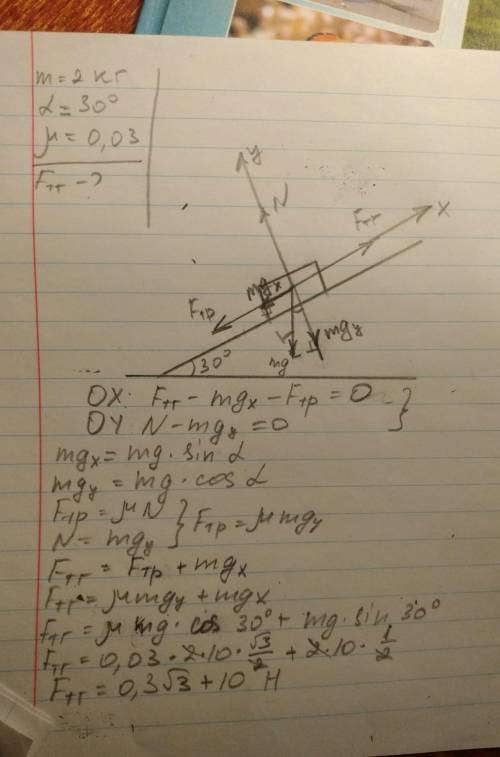 m = 2 кг
α = 30°
μ = 0,03
Fтг - ?
y
N
Fтг
X
mgx
Fтр
mgy
mg
30°
OX: Fтг - mgx - Fтр = 0
OY N - mgy = 0
mgx = mg · sin α
mgy = mg · cos α
Fтр = μN
N = mgy } Fтр = μmgy
Fтг = Fтр + mgx
Fтг = μmgy + mgx
Fтг = μ mg · cos 30° + mg · sin 30°
Fтг = 0,03 · 2 · 10 · √3/2 + 2 · 10 · 1/2
Fтг = 0,3√3 + 10 Н